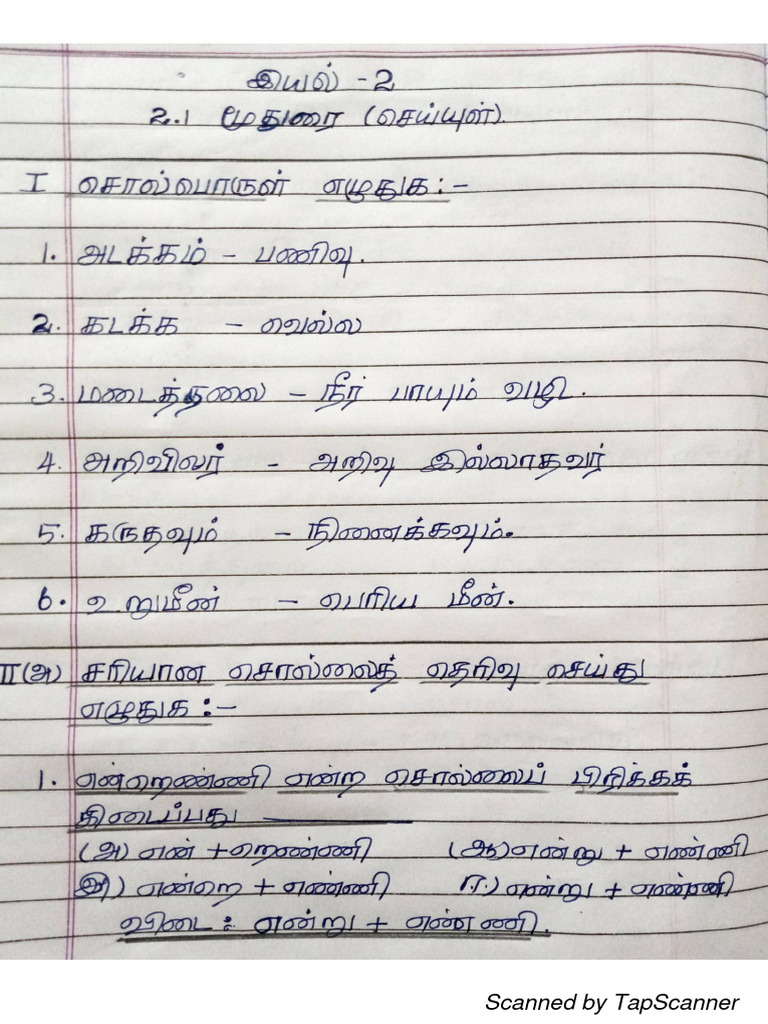 இயல் - 2
2.1 மூதுரை (செய்யுள்).
I சொல்பொருள் எழுதுக :-
1. அடக்கம் - பணிவு.
2. கடக்க - வெல்ல
3. மடைத்தலை - நீர் பாயும் வழி.
4. அறிவிலர் - அறிவு இல்லாதவர்
5. கருதவும் - நினைக்கவும்.
6. உறுமீன் - பெரிய மீன்.
II (அ) சரியான சொல்லைத் தெரிவு செய்து
எழுதுக :-
1. என்றெண்ணி என்ற சொல்லைப் பிரிக்கக்
கிடைப்பது ________
(அ) என் + றெண்ணி (ஆ) என்று + எண்ணி
(இ) என்றெ + எண்ணி ஈ) என்று + எண்ணி
விடை : என்று + எண்ணி.
Scanned by TapScanner